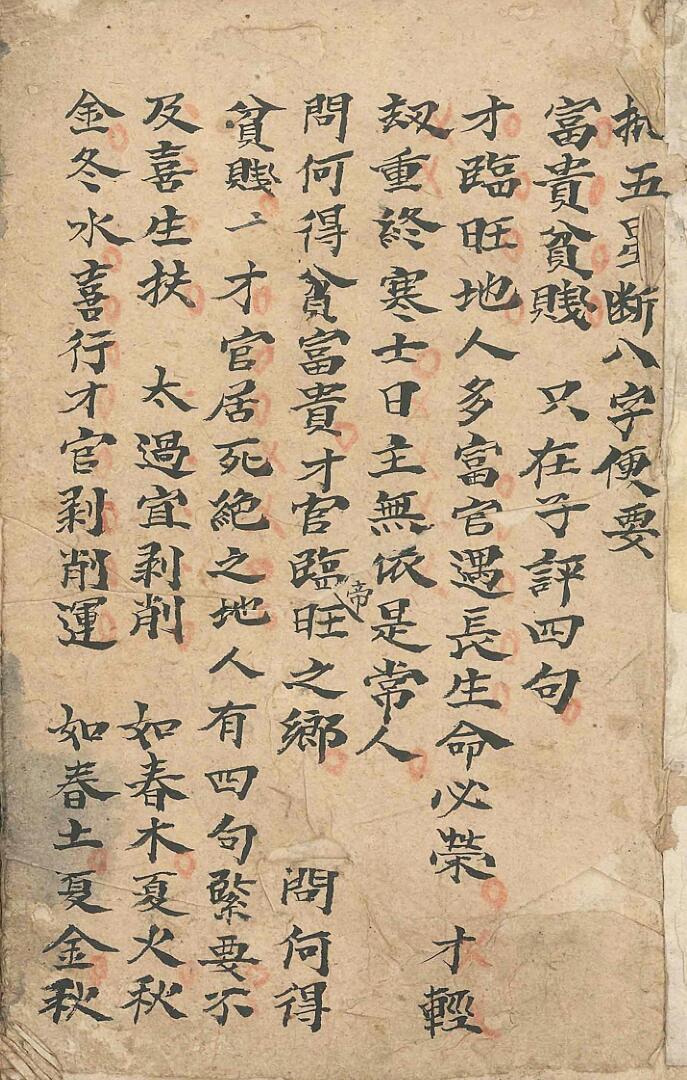 批五星断八字便要
富貴貧賤 只在子評四句
才臨旺地人多富官遇長生命必榮 才輕
刼重終寒士日主無依是常人
問何得貧富貴才官臨帝旺之鄉 問何得
貧賤二才官居死絶之地人有四句緊要不
及喜生扶 太過宜剥削 如春木夏火秋
金冬水喜行才官剥削運 如春土夏金秋